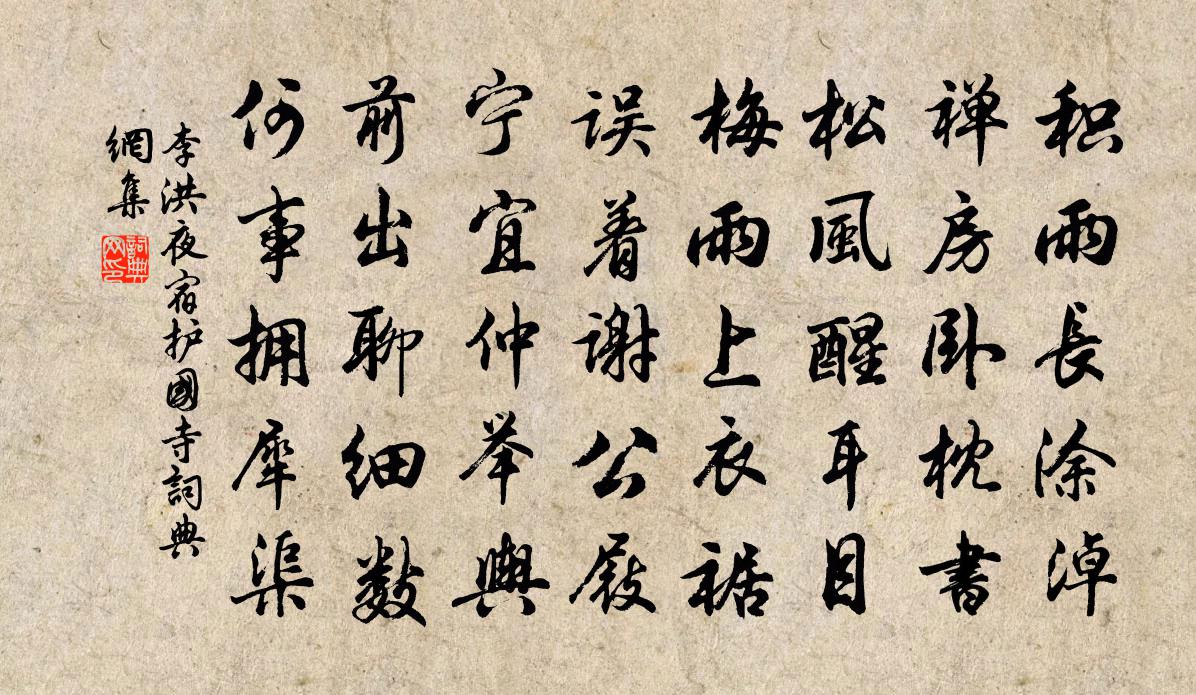 积雨長涂淖
禅房卧枕書
松風醒耳目
梅雨上衣裾
误着谢公屐
宁宜仲举輿
前出聊细数
何事拥犀渠
李洪夜宿护國寺詞典
網集
詞典网印